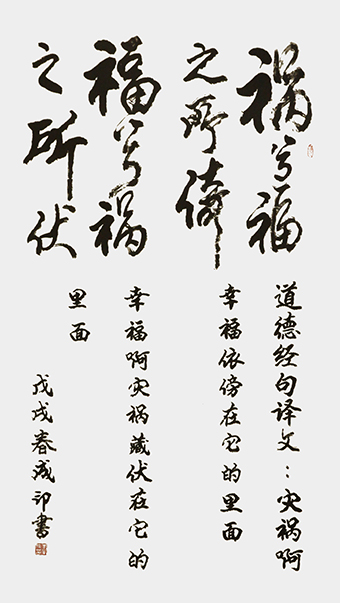 祸兮福
之所倚
福兮祸
之所伏
道德经句译文：灾祸啊
幸福依傍在它的里面
幸福啊灾祸藏伏在它的
里面
戊戌春成印書